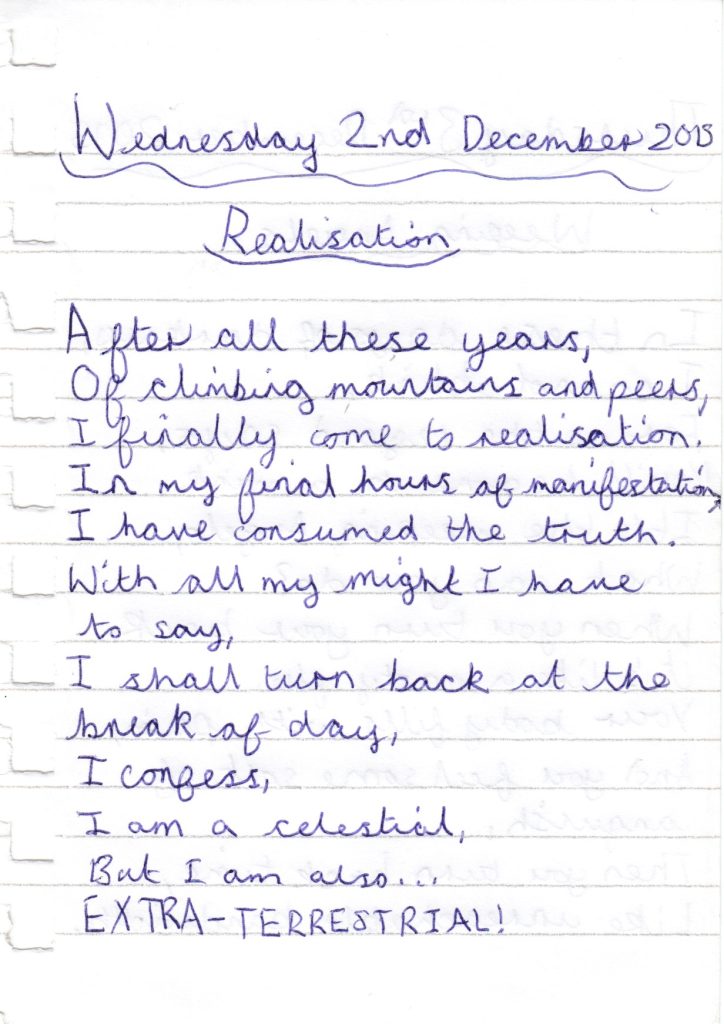 Wednesday 2nd December 2015
Realisation
After all these years,
Of climbing mountains and peers,
I finally come to realisation.
In my final hours of manifestation,
I have consumed the truth.
With all my might I have
to say,
I shall turn back at the
break of day,
I confess,
I am a celestial,
But I am also...
EXTRA-TERRESTRIAL!